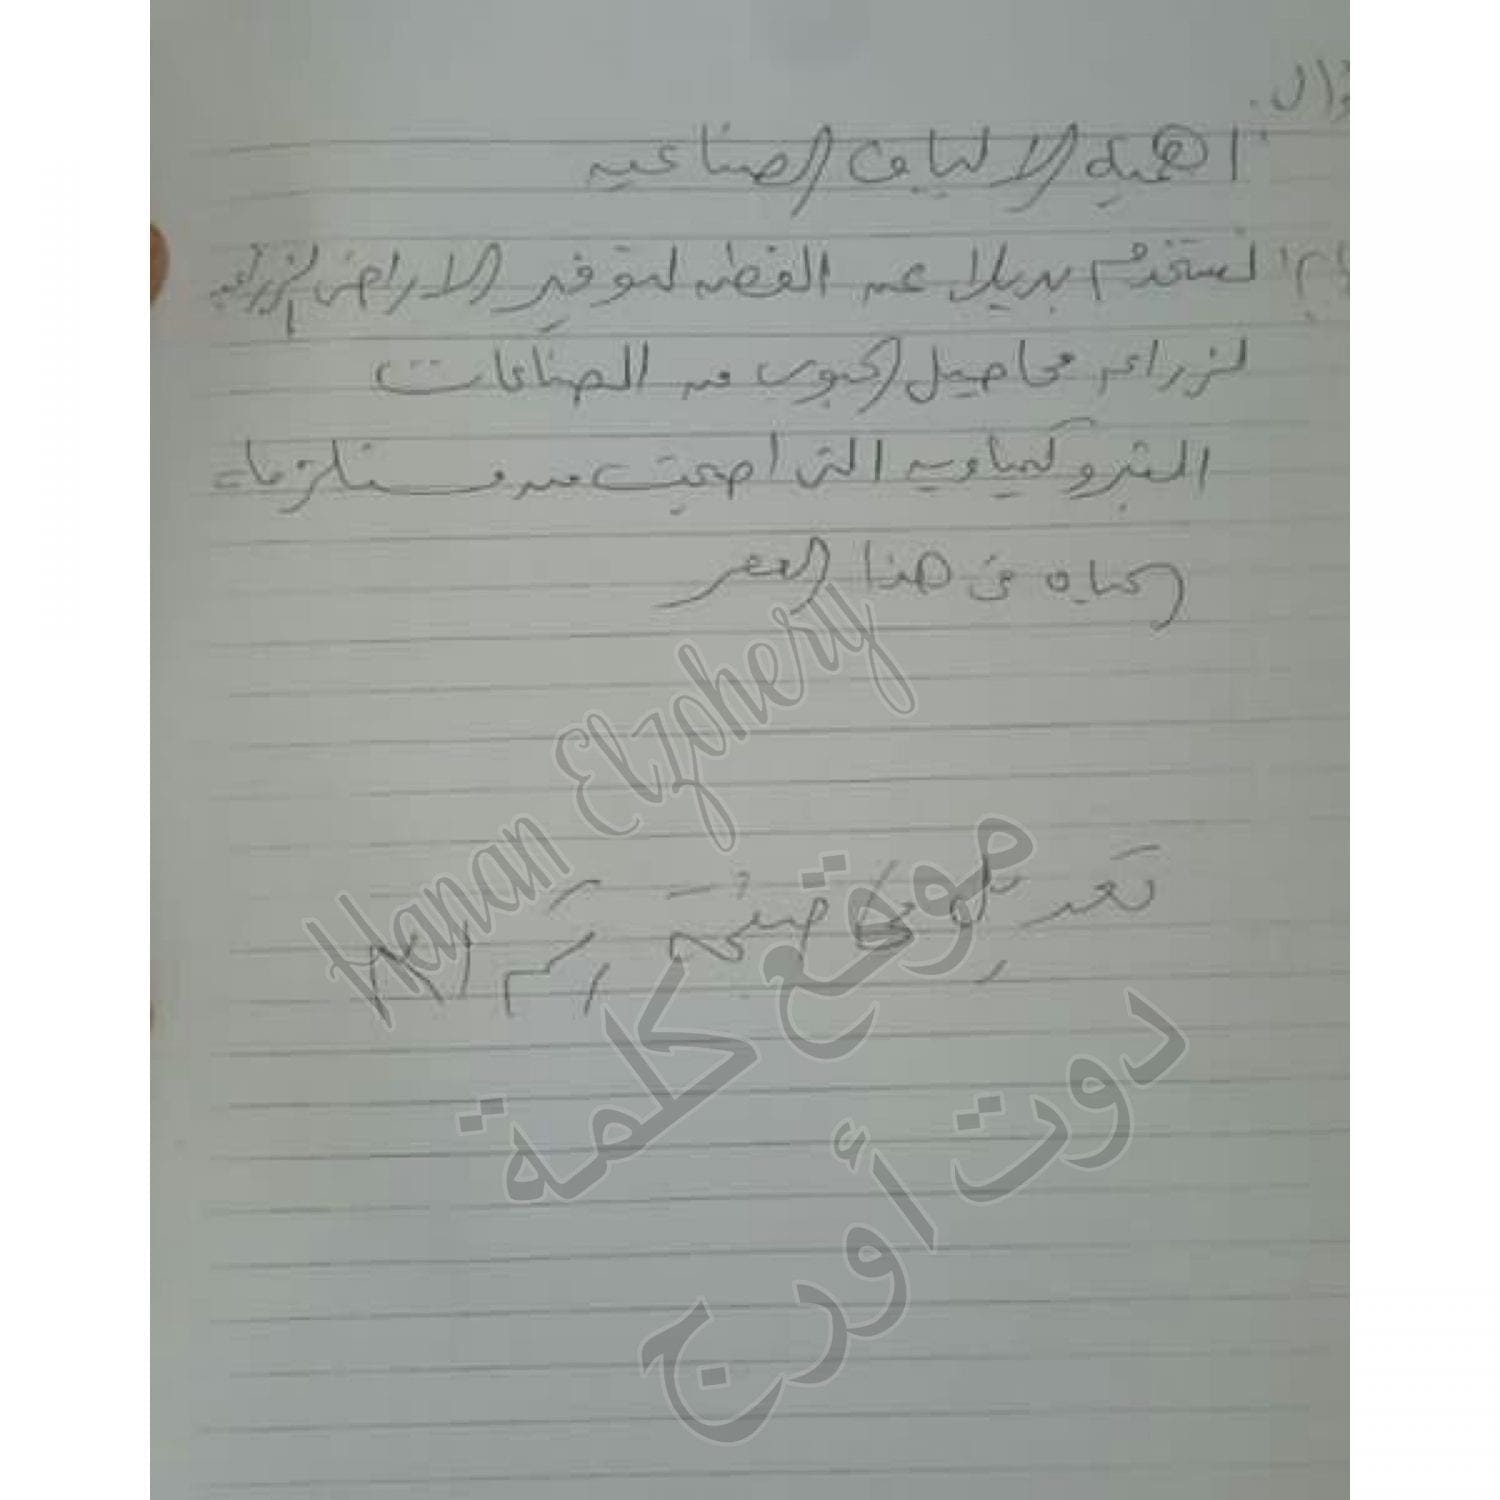 ؤال.
اهمية الالياف الصناعيه
تستخدم بديلا عن القطن لتوفير الاراضى الزراعيه
لزراعه محاصيل الحبوب من الصناعات
البتروكيماويه التى اصبحت من مستلزمات
الحياه فى هذا العصر
تعديل صفحة رقم
Hanan Elzohery
موقع كلمة
دوت أورج